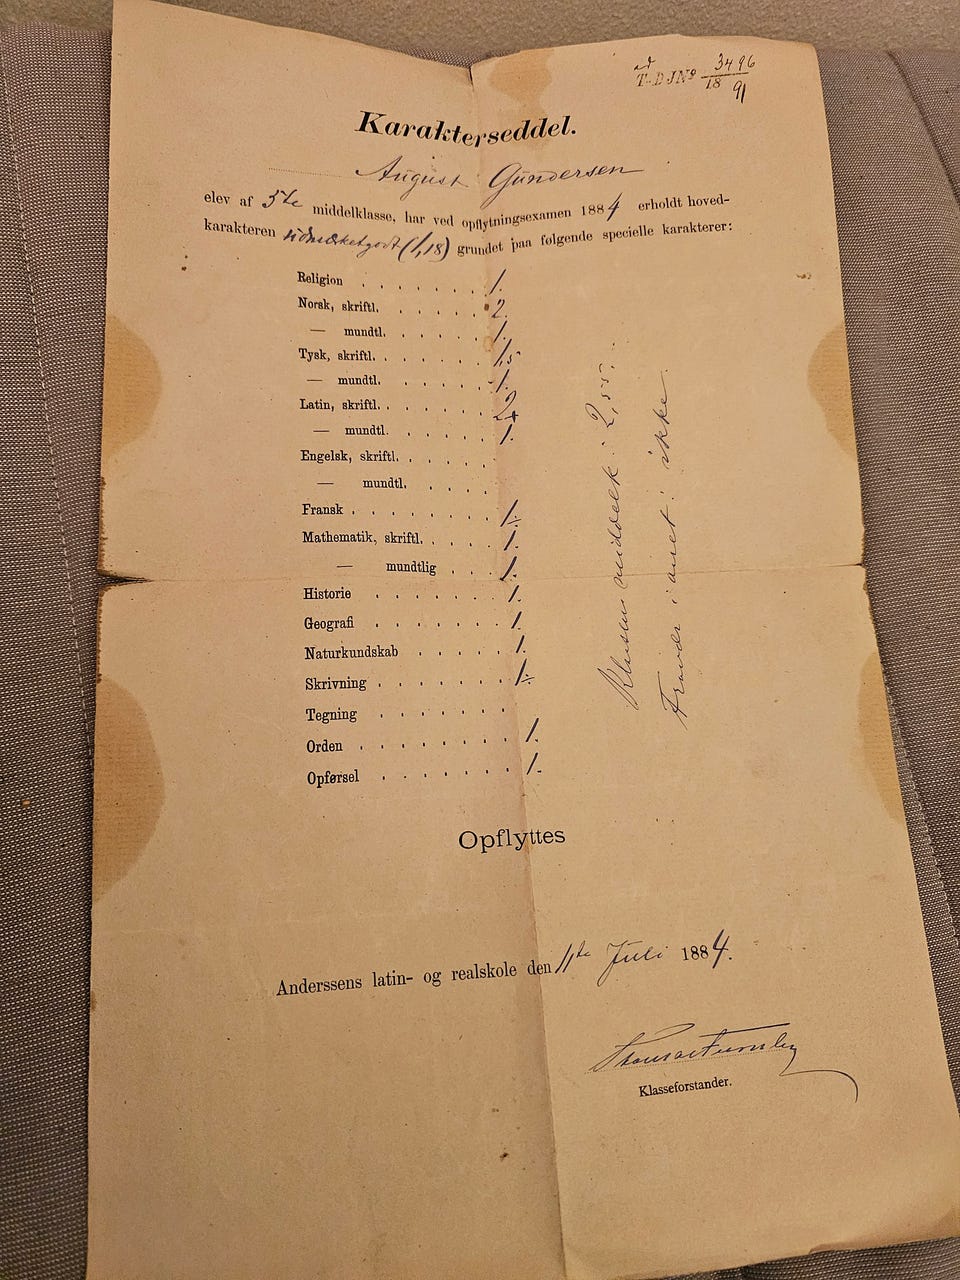 ad 3496
T-D JNo 18 91
Karakterseddel.
August Gundersen
elev af 5te middelklasse, har ved opflytningsexamen 1884 erholdt hoved-
karakteren udmærketgodt (1,18) grundet paa følgende specielle karakterer:
Religion . . . . . . . 1.
Norsk, skriftl. . . . . . 2.
— mundtl. . . . . . 1.
Tysk, skriftl. . . . . . . 1,5
— mundtl. . . . . . 1.
Latin, skriftl. . . . . . . 2+
— mundtl. . . . . . 1.
Engelsk, skriftl. . . . .
— mundtl. . . . .
Fransk . . . . . . . . 1÷
Mathematik, skriftl. . . . . 1.
— mundtlig . . . 1.
Historie . . . . . . . 1.
Geografi . . . . . . . 1.
Naturkundskab . . . . . 1.
Skrivning . . . . . . . 1÷
Tegning . . . . . . .
Orden . . . . . . . . 1.
Opførsel . . . . . . . 1.
Klassens middelk.: 2,55.
Fravær i aaret: ikke.
Opflyttes
Anderssens latin- og realskole den 11te Juli 1884.
Klasseforstander.